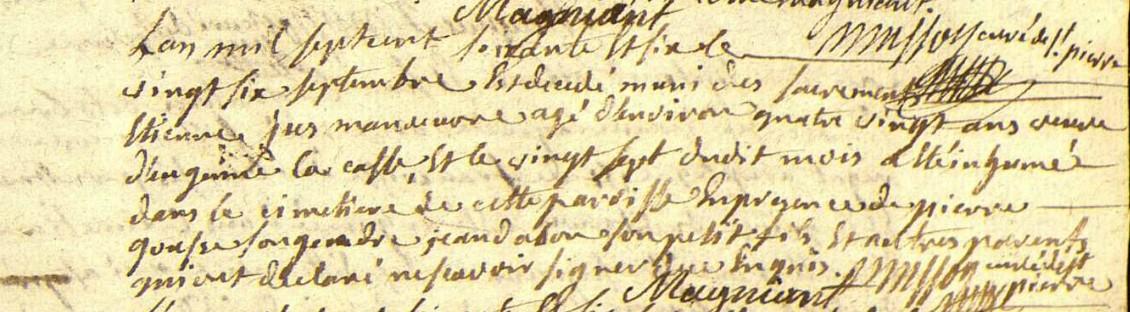 Magniant
musson curé de st. pierre
L'an mil sept cent soixante et six le
vingt six septembre est decedé muni des sacrements
Etienne jus manoeuvre agé d'environ quatre vingt ans veuve
la casse, et le vingt sept dudit mois a été inhumé
dans le cimetiere de cette paroisse En presence de pierre
son gendre jean son petit fils et autres parents
qui ont declaré ne scavoir signer de ce Enquis. musson curé de st
Magniant pierre